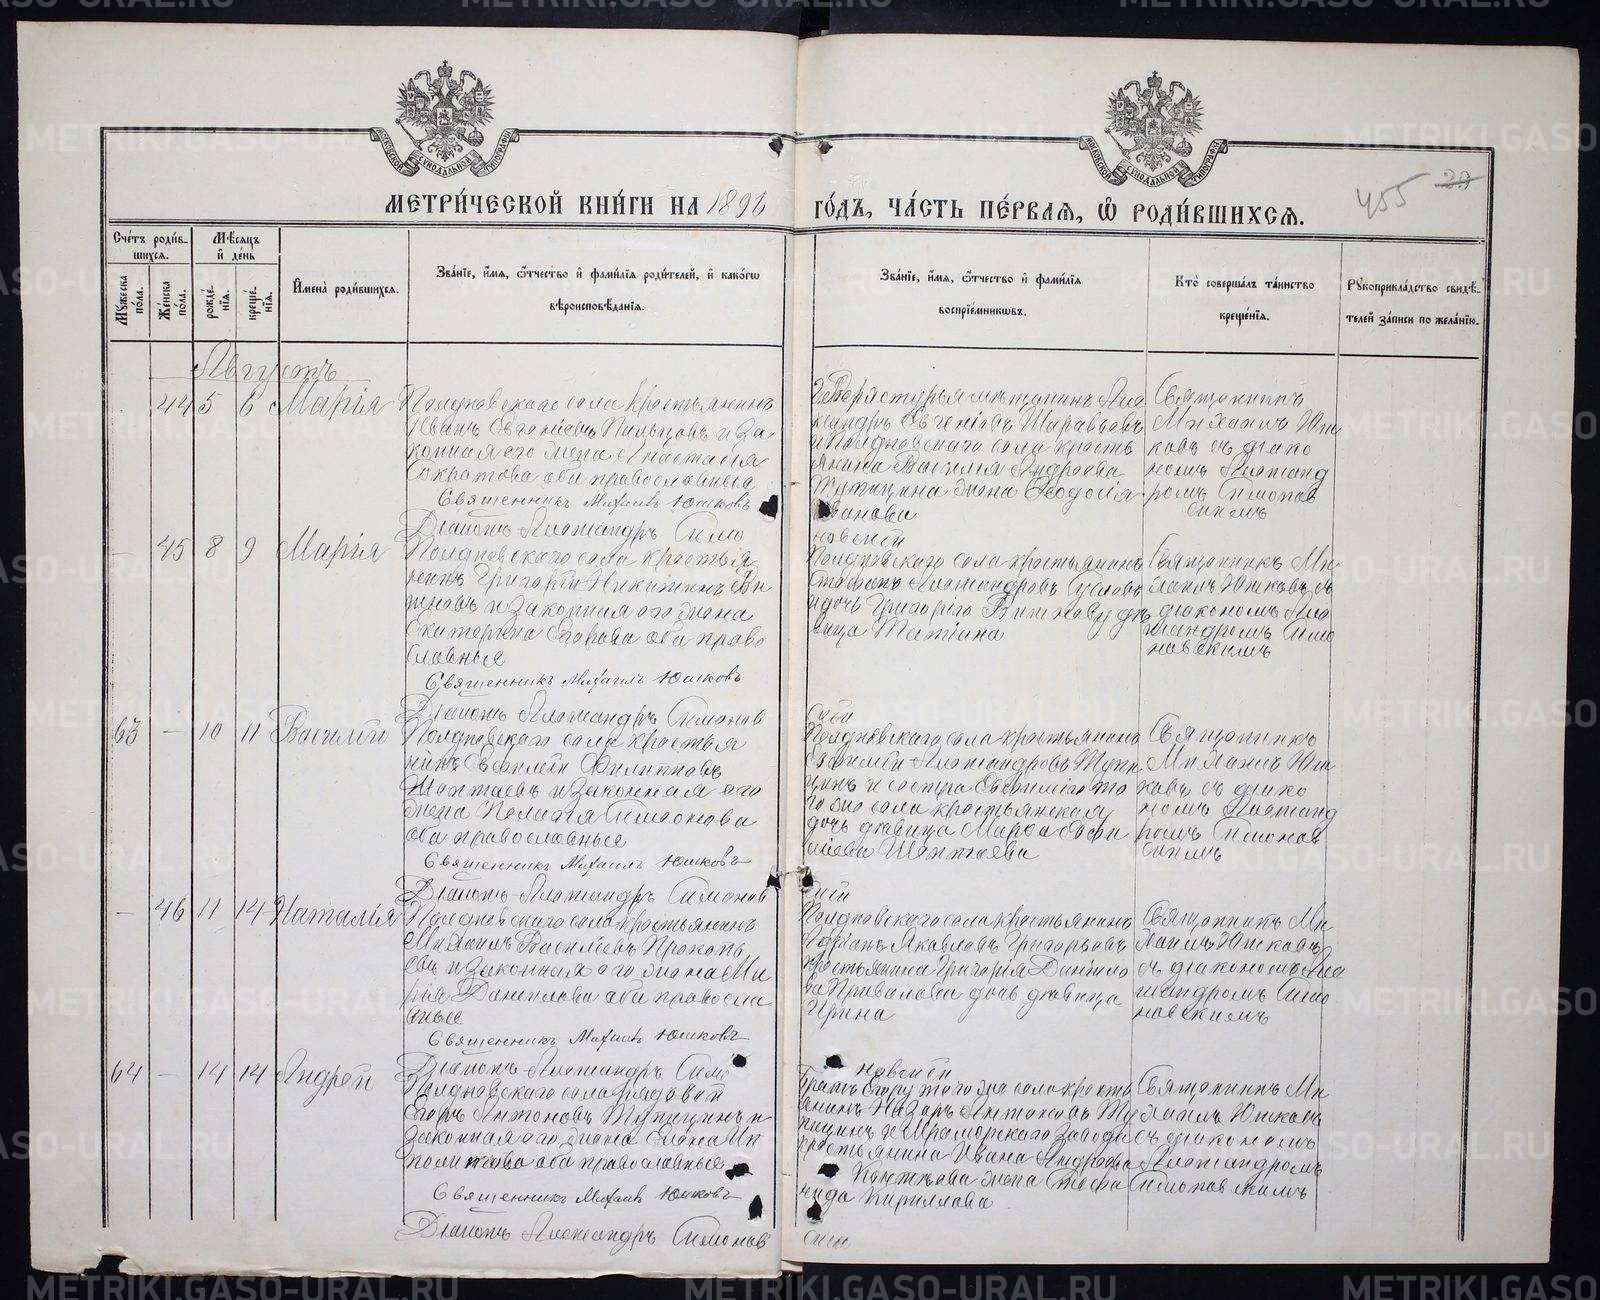 МЕТРИ́ЧЕСКОЙ КНИ́ГИ НА 1896 ГО́ДЪ, ЧА́СТЬ ПЕ́РВАЯ, Ѡ҆ РОДИ́ВШИХСѦ.
455 29
Сче́тъ роди́в-
шихсѧ.
Мѣ́сѧцъ
и҆ де́нь
Мꙋ́жеска по́ла.
Же́нска по́ла.
рожде́-
нїѧ.
креще́-
нїѧ.
И҆мена̀ роди́вшихсѧ.
Зва́нїе, и҆́мѧ, ѻ҆́тчество и҆ фами́лїѧ роди́телей, и҆ како́гѡ
вѣроисповѣ́данїѧ.
Зва́нїе, и҆́мѧ, ѻ҆́тчество и҆ фами́лїѧ
воспрїе́мникѡвъ.
Кто̀ соверша́лъ та́инство
креще́нїѧ.
Рꙋкоприкла́дство свидѣ́-
телей за́писи по жела́нїю.
Августъ
44 5 6 Марія
Полдневскаго села крестьянинъ
Иванъ Евгеніевъ Пальцовъ и за
конная его жена Анастасія
Сократова оба православные
Священникъ Михаилъ Юшковъ
Діаконъ Александръ Симо
новскій
Верхотурья мѣщанинъ Але
ксандръ Евгеніевъ
и Полдневскаго села кресть
янина Василія Андреева
Тупицина жена Ѳеодосія
Иванова
Священникъ
Михаилъ Юш
ковъ съ діако
номъ Александ
ромъ Симонов
скимъ
45 8 9 Марія
Полдневскаго села крестья
нинъ Григорій Никитинъ Ви
тновъ и законная его жена
Екатерина Егорова оба право
славные
Священникъ Михаилъ Юшковъ
Діаконъ Александръ Симонов
скій
Полдневскаго села крестьянинъ
Стефанъ Александровъ
и дочь Григорія дѣ
вица Татіана
Священникъ Ми
хаилъ Юшковъ съ
діакономъ Але
ксандромъ Симо
новскимъ
63 — 10 11 Василій
Полдневскаго села крестья
нинъ Евфимій Филипповъ
Шептаевъ и законная его
жена Пелагія Симеонова
оба православные
Священникъ Михаилъ Юшковъ
Діаконъ Александръ Симонов
скій
Полдневскаго села крестьянинъ
Александровъ Тупи
цинъ и сестра Евфимія то
го же села крестьянская
дочь дѣвица Марѳа
Шептаева
Священникъ
Михаилъ Юш
ковъ съ діако
номъ Александ
ромъ Симонов
скимъ
— 46 11 14 Наталія
Полдневскаго села крестьянинъ
Михаилъ Васильевъ Прокопь
евъ и законная его жена Ма
рія Данилова оба правосла
вные
Священникъ Михаилъ Юшковъ
Діаконъ Александръ Симо
новскій
Полдневскаго села крестьянинъ
Яковлевъ Григорьевъ
крестьянина Григорія Данило
ва Привалова дочь дѣвица
Ирина
Священникъ Ми
хаилъ Юшковъ
съ діакономъ Але
ксандромъ Симо
новскимъ
64 — 14 14 Андрей
Полдневскаго села рядовой
Егоръ Антоновъ Тупицинъ и
законная его жена Елена Ип
политова оба православные
Священникъ Михаилъ Юшковъ
Діаконъ Александръ Симонов
скій
Братъ Егору того же села кресть
янинъ Назаръ Антоновъ Ту
пицинъ и Мраморскаго завода
крестьянина Ивана Андреева
жена Стефа
нида Кириллова
Священникъ Ми
хаилъ Юшковъ
съ діакономъ
Александромъ
Симоновскимъ